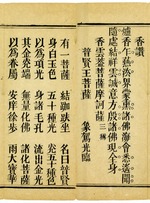 香讚
爐香乍熱法界蒙薰諸佛海會悉遙聞
隨處結祥雲誠意方殷諸佛現全身
香雲蓋菩薩摩訶薩 三稱
普賢王菩薩 象駕光臨
有一菩薩 結跏趺坐 名曰普賢
身白玉色 五十種光 光五十種色
以為項光 身諸毛孔 流出金光
其金光端 無量化佛 諸化菩薩
以為眷屬 安庠徐步 雨大寶華